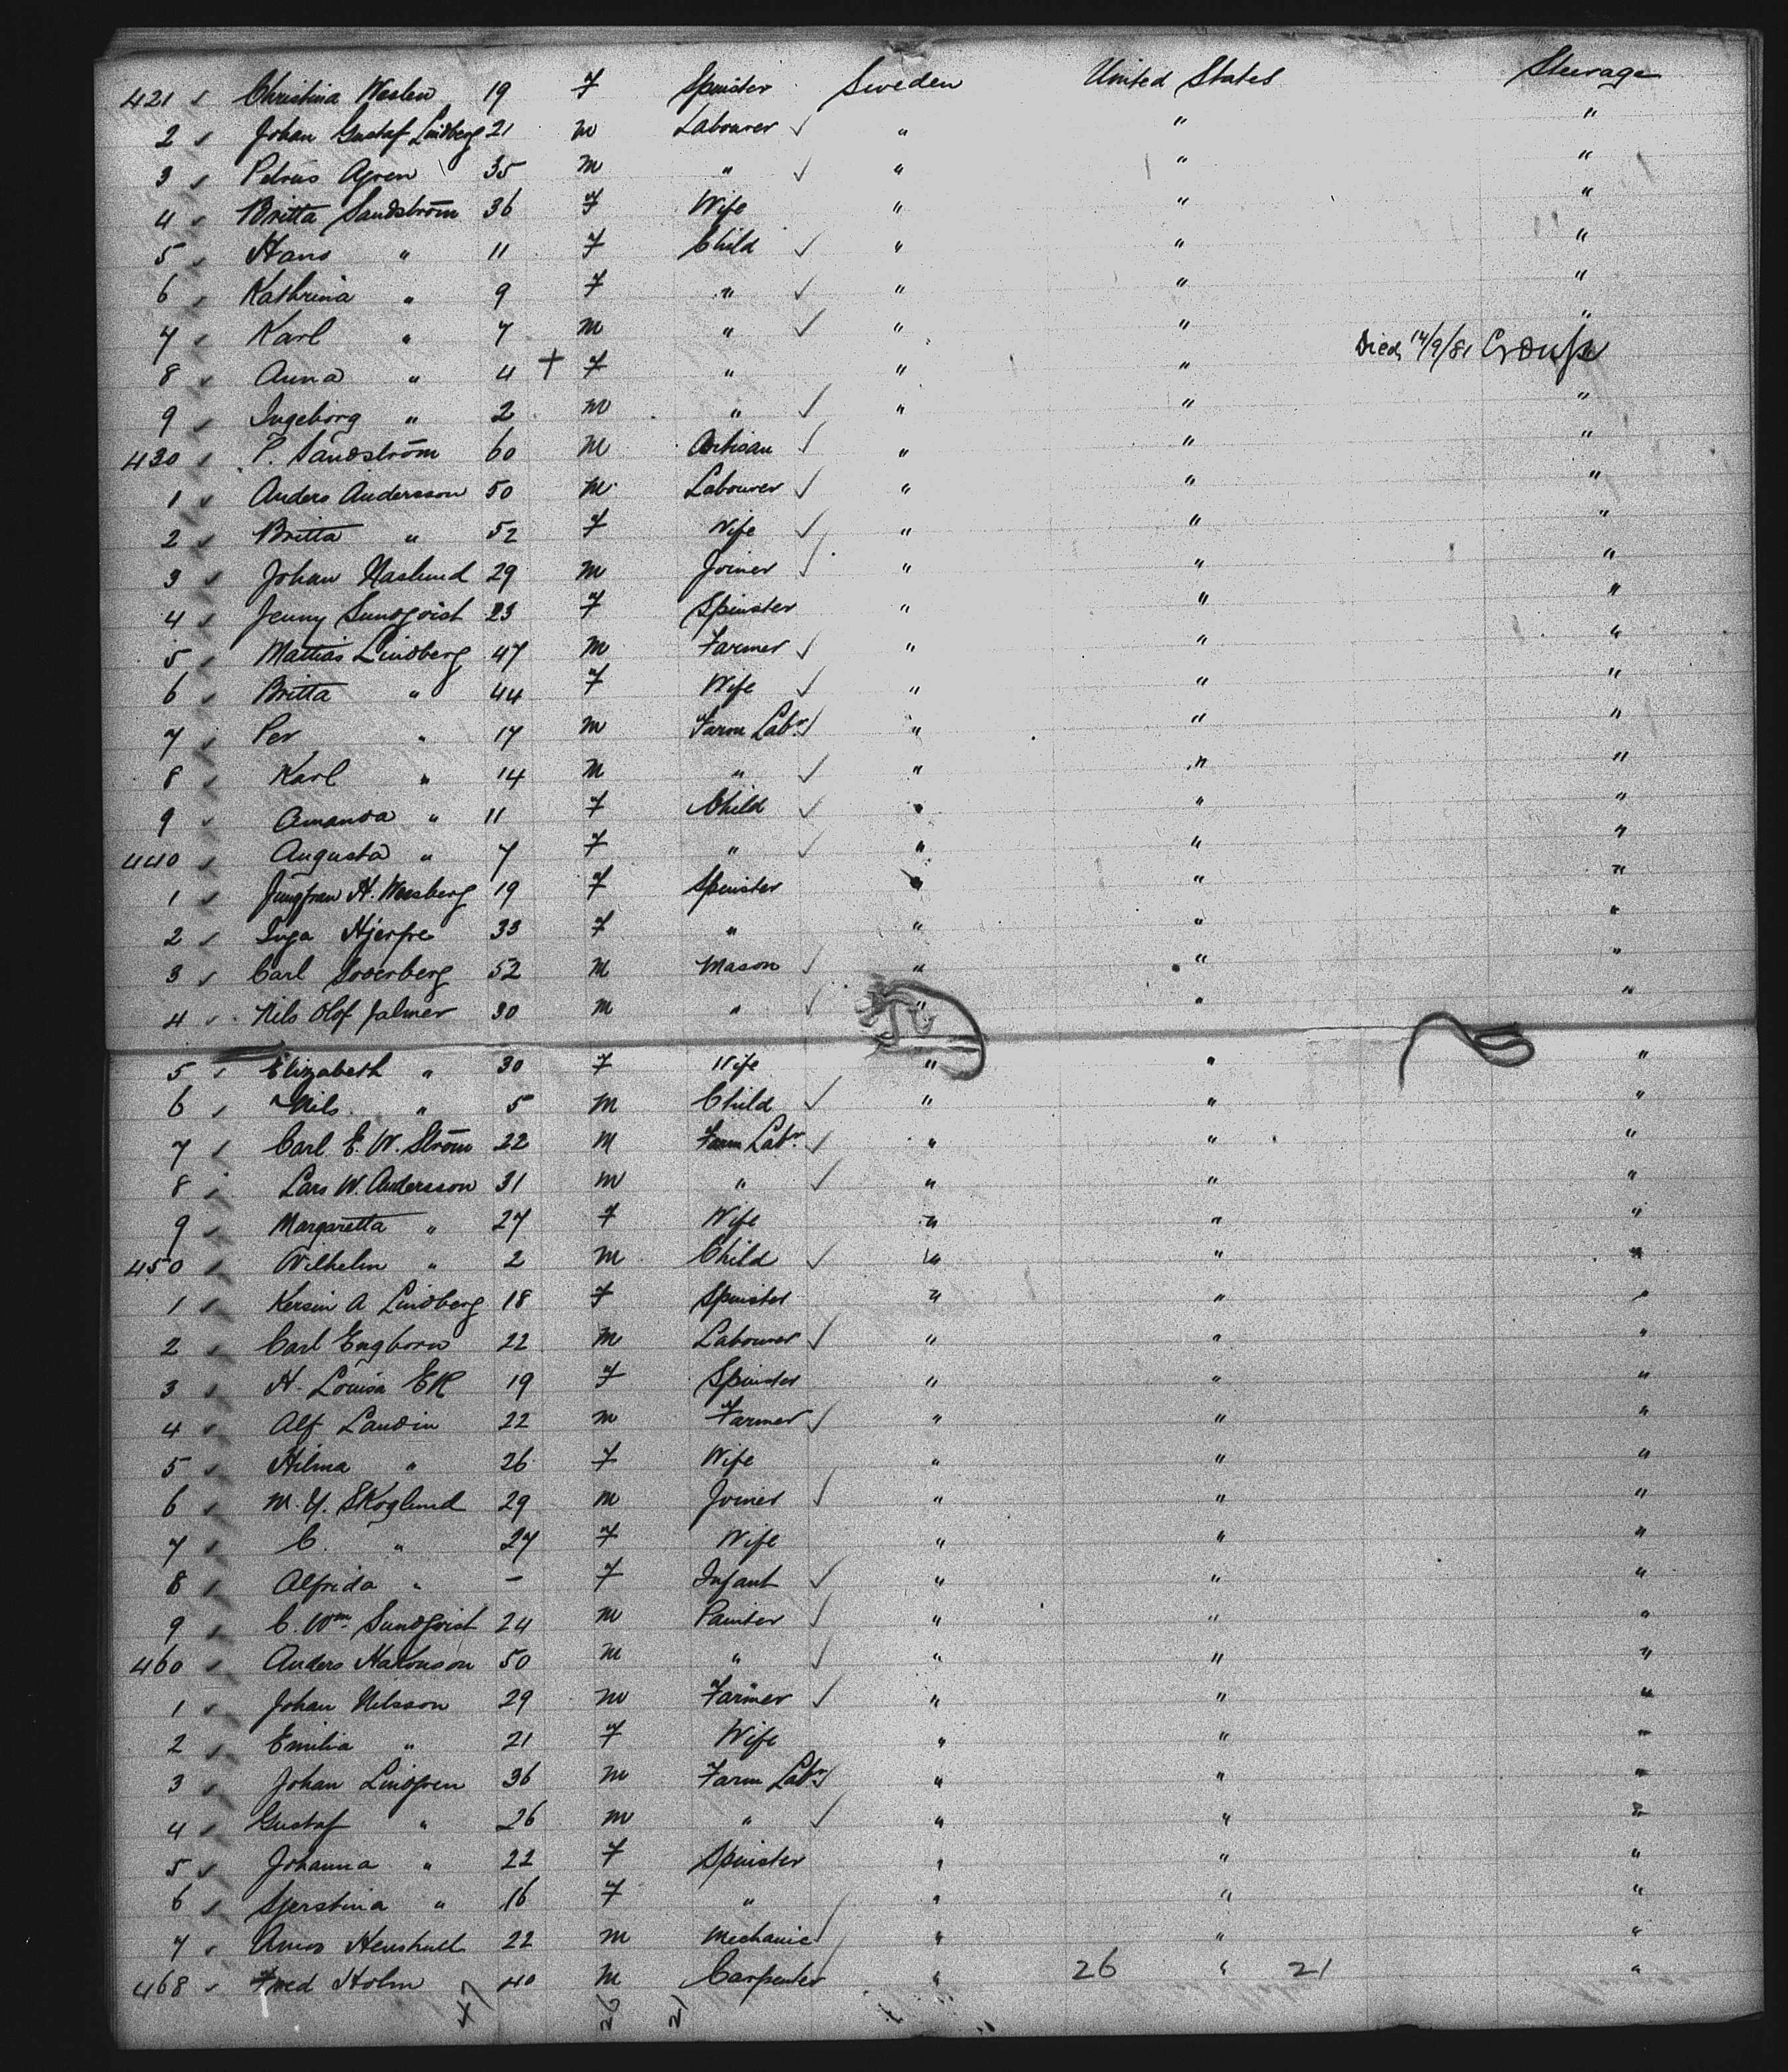 421 ✓ Christina Weslen 19 F Spinster Sweden United States Steerage
2 ✓ Johan Gustaf Lindberg 21 M Labourer ✓ " " "
3 ✓ Petrus Agren 35 M " ✓ " " "
4 ✓ Britta Sandström 36 F Wife " " "
5 ✓ Hans " 11 F Child ✓ " " "
6 ✓ Kathrina " 9 F " ✓ " " "
7 ✓ Karl " 7 M " ✓ " " "
8 ✓ Anna " 4 + F " " " Died 14/9/81 Croup
9 ✓ Ingeborg " 2 M " ✓ " " "
430 ✓ P. Sandström 60 M Artisan ✓ " " "
1 ✓ Anders Andersson 50 M Labourer ✓ " " "
2 ✓ Britta " 52 F Wife ✓ " " "
3 ✓ Johan Naslund 29 M Joiner ✓ " " "
4 ✓ Jenny Sundqvist 23 F Spinster " " "
5 ✓ Mattias Lindberg 47 M Farmer ✓ " " "
6 ✓ Britta " 44 F Wife ✓ " " "
7 ✓ Per " 17 M Farm Labr ✓ " " "
8 ✓ Karl " 14 M " ✓ " " "
9 ✓ Amanda " 11 F Child ✓ " " "
440 ✓ Augusta " 7 F " ✓ " " "
1 ✓ Jungfrau H. Wesberg 19 F Spinster " " "
2 ✓ Inga Hjerpe 33 F " " " "
3 ✓ Carl Soderberg 52 M Mason ✓ " " "
4 ✓ Nils Olof Jalmer 30 M " ✓ " " "
5 ✓ Elizabeth " 30 F Wife " " "
6 ✓ Nils " 5 M Child ✓ " " "
7 ✓ Carl E. W. Ström 22 M Farm Labr ✓ " " "
8 ✓ Lars W. Andersson 31 M " ✓ " " "
9 ✓ Margaretta " 27 F Wife " " "
450 ✓ Wilhelm " 2 M Child ✓ " " "
1 ✓ Kersin A Lindberg 18 F Spinster " " "
2 ✓ Carl Engborn 22 M Labourer ✓ " " "
3 ✓ H. Louisa Ek 19 F Spinster " " "
4 ✓ Alf Landin 22 M Farmer ✓ " " "
5 ✓ Hilma " 26 F Wife " " "
6 ✓ M. Y. Skoglund 29 M Joiner ✓ " " "
7 ✓ C. " 27 F Wife " " "
8 ✓ Alfrida " - F Infant ✓ " " "
9 ✓ C. Wm Sundqvist 24 M Painter ✓ " " "
460 ✓ Anders Hakonson 50 M " ✓ " " "
1 ✓ Johan Nilsson 29 M Farmer ✓ " " "
2 ✓ Emilia " 21 F Wife " " "
3 ✓ Johan Lindgren 36 M Farm Labr ✓ " " "
4 ✓ Gustaf " 26 M " ✓ " " "
5 ✓ Johanna " 22 F Spinster " " "
6 ✓ Sjerstina " 16 F " " " "
7 ✓ Amos Henshull 22 M Mechanic ✓ " " "
468 ✓ Fred Holm 40 M Carpenter " 26 " 21 "
47 26 21